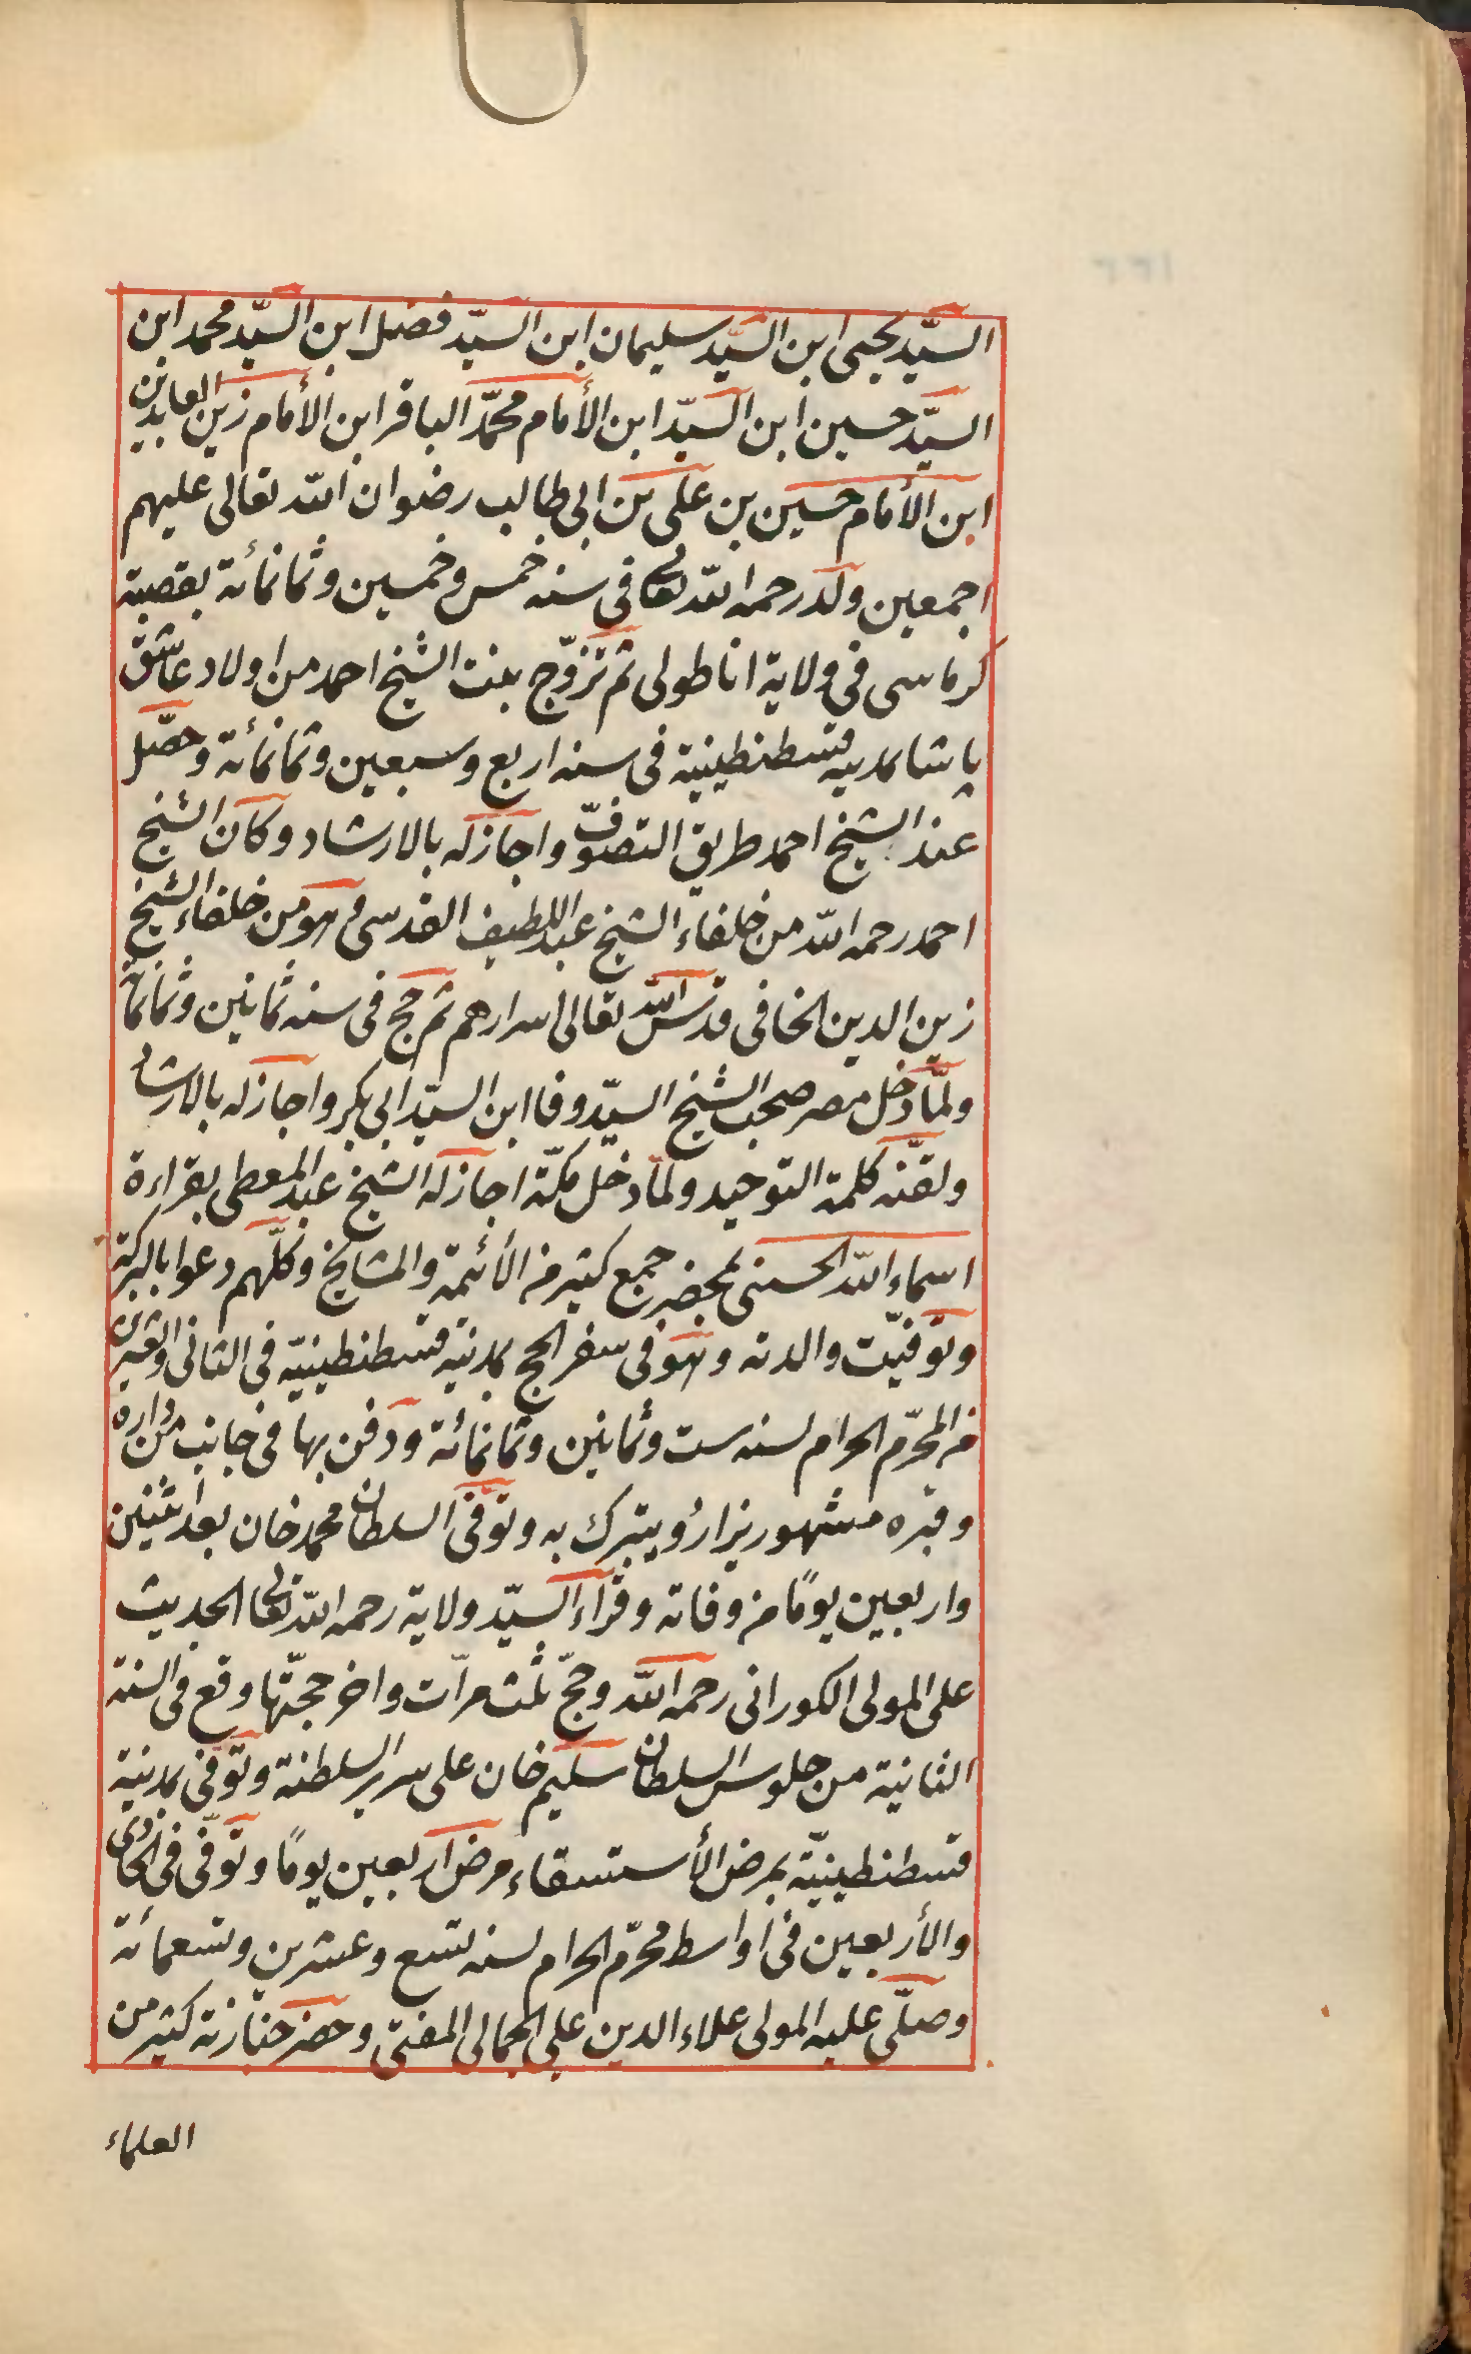 السيّد يحيى ابن السيّد سليمان ابن السيّد فضل ابن السيّد محمد ابن
السيّد حسين ابن السيّد ابن الأمام محمّد الباقر ابن الأمام زين العابدين
ابن الأمام حسين بن على بن ابى طالب رضوان اللّه تعالى عليهم
اجمعين ولد رحمه اللّه تعالى فى سنه خمس وخمسين وثمانمائة بقصبة
كرماسى فى ولاية اناطولى ثم تزوّج بنت الشيخ احمد من اولاد عاشق
پاشا بمدينه قسطنطينية فى سنه اربع وسبعين وثمانمائة وحصّل
عند الشيخ احمد طريق التصوّف واجازله بالارشاد وكان الشيخ
احمد رحمه اللّه من خلفاء الشيخ عبد اللطيف القدسى وهو من خلفاء الشيخ
زين الدين الخافى قدس اللّه تعالى اسرارهم ثم حج فى سنه ثمانين وثمانمائة
ولمّا دخل مصر صحب الشيخ السيّد وفا ابن السيّد ابى بكر واجازله بالارشاد
ولقّنه كلمة التوحيد ولمّا دخل مكّة اجازله الشيخ عبد المعطى بقراءة
اسماء اللّه الحسنى بمحضر جمع كثير من الأئمة والمشايخ وكلّهم دعوا بالبركة
وتوفيّت والدته وهو فى سفر الحج بمدينة قسطنطينية فى الثانى والعشرين
من المحرّم الحرام لسنه ست وثمانين وثمانمائة ودفن بها فى جانب من داره
وقبره مشهور يزارُ ويتبرك به وتوفى السلطان محمد خان بعد اثنين
واربعين يومًا من وفاته وقرأ السيّد ولاية رحمه اللّه تعالى الحديث
على المولى الكورانى رحمه اللّه وحجّ ثلث مرّات واخر حجّتها وقع فى السنة
الثانية من جلوس السلطان سليم خان على سرير السلطنة وتوفى بمدينة
قسطنطينيّة بمرض الأستسقاء مرض اربعين يومًا وتوفّى فى الحادى
والأربعين فى اواسط محرّم الحرام لسنه تسع وعشرين وتسعمائة
وصلّى عليه المولى علاء الدين على الجمالى المفتى وحضر جنازته كثير من
العلماء